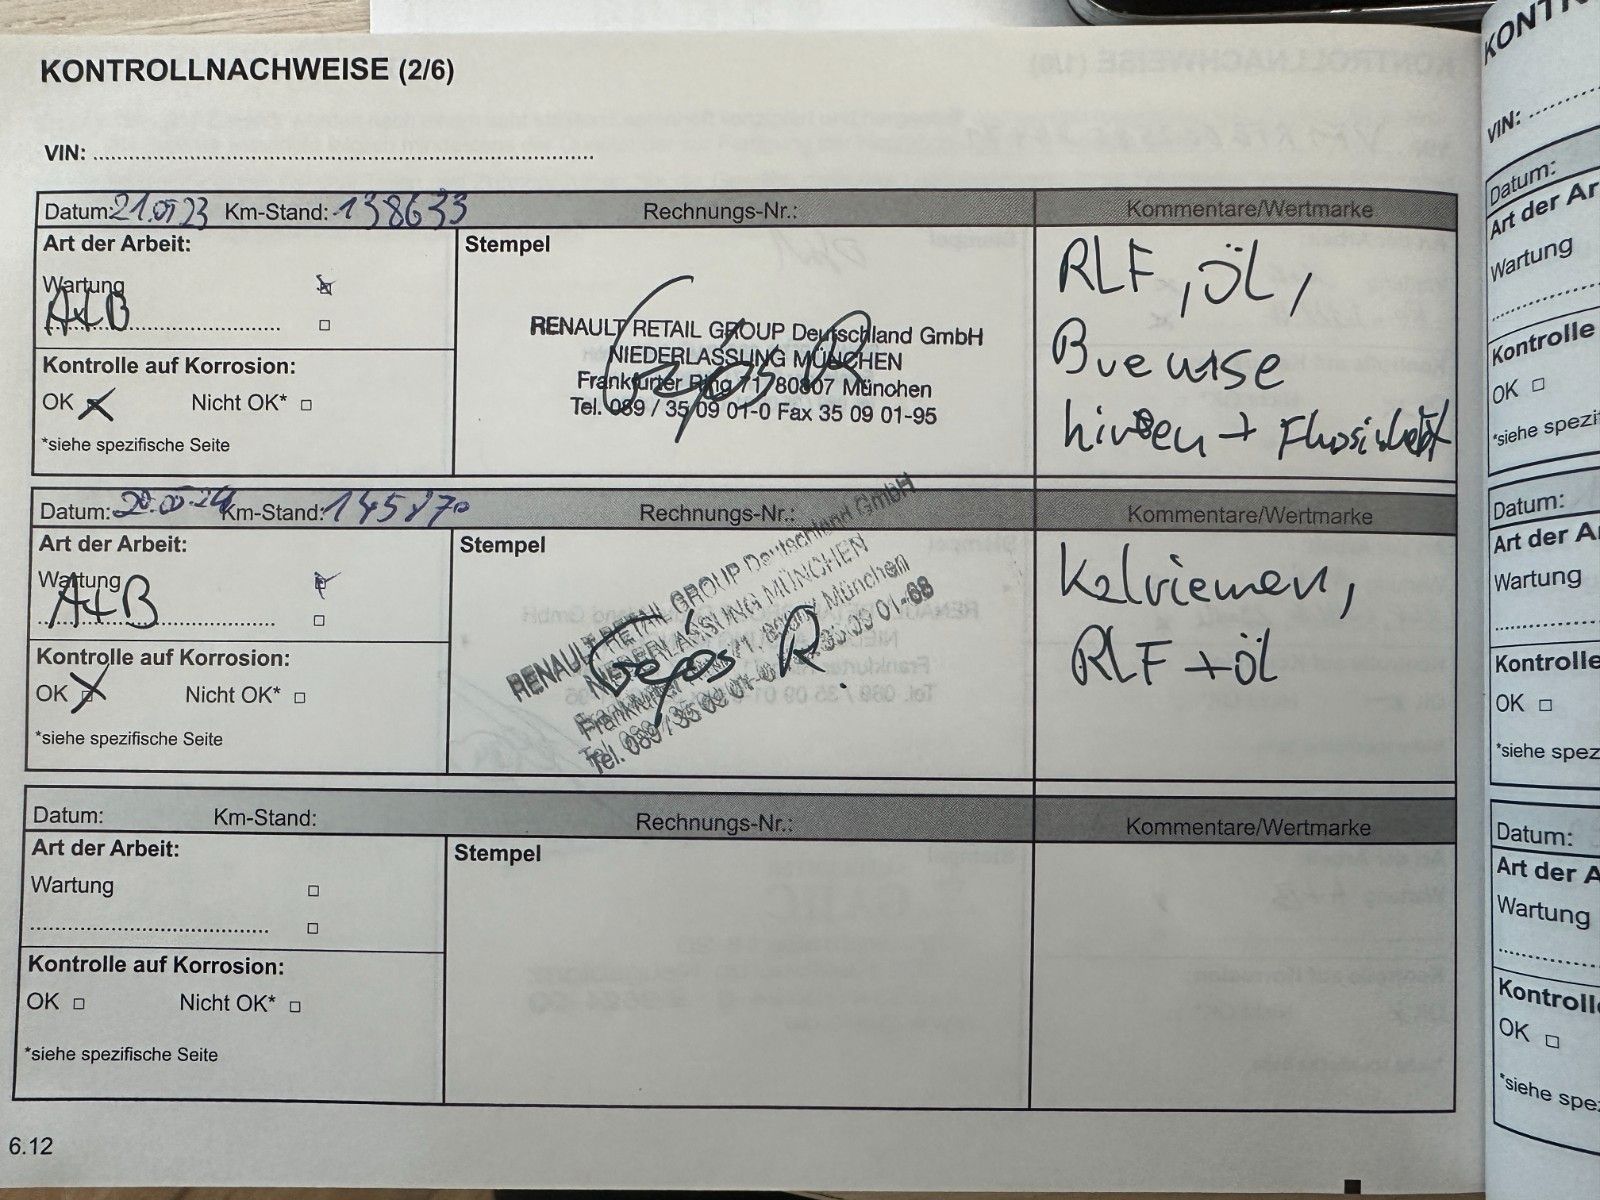 KONTROLLNACHWEISE (2/6)
VIN:
Datum: 21. 23 Km-Stand: 138633 Rechnungs-Nr.: Kommentare/Wertmarke
Art der Arbeit:
Wartung
A+B
Kontrolle auf Korrosion:
OK Nicht OK*
*siehe spezifische Seite
Stempel
RENAULT RETAIL GROUP Deutschland GmbH
NIEDERLASSUNG MÜNCHEN
Frankfurter Ring 71, 80807 München
Tel. 089 / 35 09 01-0 Fax 35 09 01-95
RLF, ÖL,
hinten +
Datum: Km-Stand: Rechnungs-Nr.: Kommentare/Wertmarke
Art der Arbeit:
Wartung
A+B
Kontrolle auf Korrosion:
OK Nicht OK*
*siehe spezifische Seite
Stempel
RENAULT RETAIL GROUP Deutschland GmbH
NIEDERLASSUNG MÜNCHEN
Frankfurter München
Tel. 089 / 35 09 01-0 35 09 01-68
R.
Keilriemen,
RLF + öl
Datum: Km-Stand: Rechnungs-Nr.: Kommentare/Wertmarke
Art der Arbeit:
Wartung
Kontrolle auf Korrosion:
OK Nicht OK*
*siehe spezifische Seite
Stempel
6.12
VIN:
Datum:
Art der Ar
Wartung
Kontrolle
OK
*siehe spezif
Datum:
Art der A
Wartung
Kontrolle
OK
*siehe spez
Datum:
Art der A
Wartung
Kontroll
OK
*siehe spe